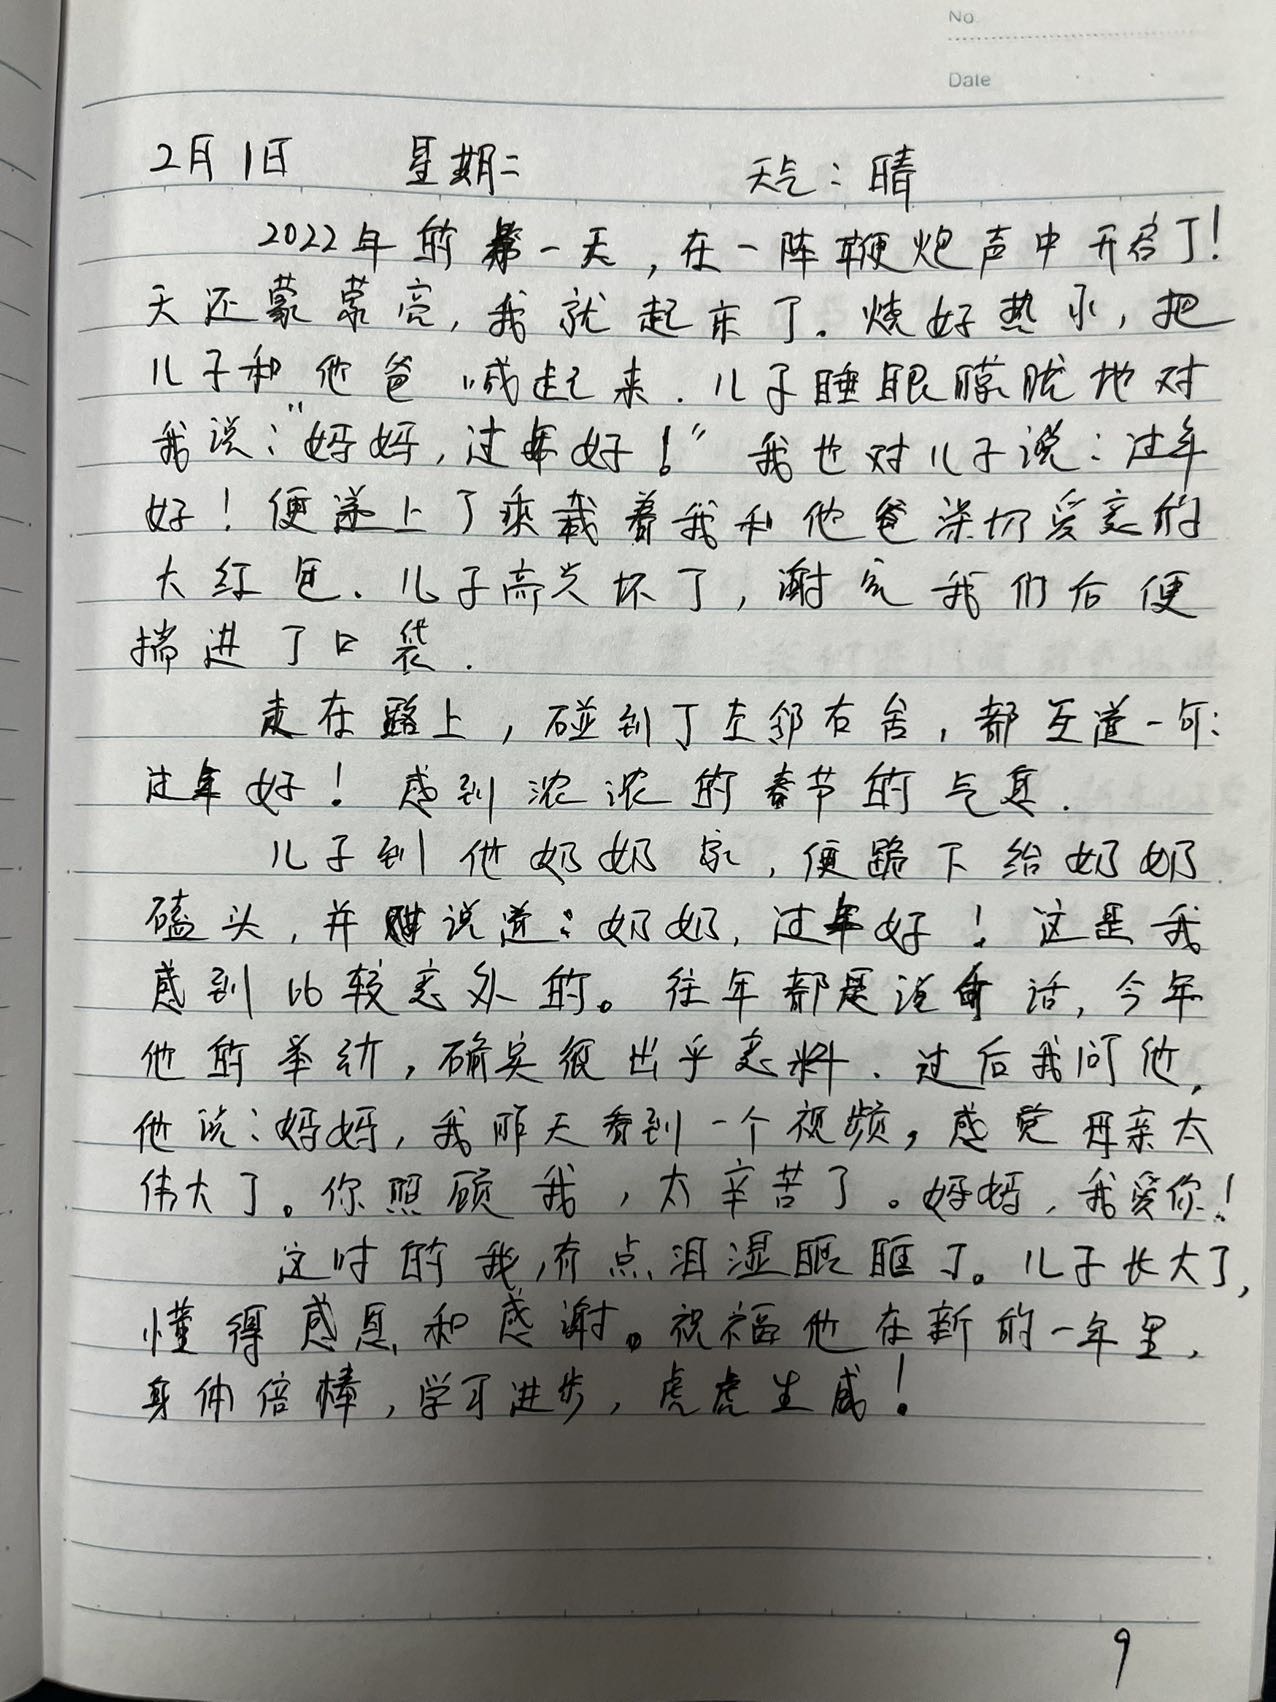 No
Date
2月1日 星期二 天气：晴
2022年的第一天，在一阵鞭炮声中开启了！
天还蒙蒙亮，我就起床了。烧好热水，把
儿子和他爸喊起来．儿子睡眼朦胧地对
我说："妈妈，过年好！"我也对儿子说：过年
好！便递上了乘载着我和他爸深切爱意的
大红包．儿子高兴坏了，谢完我们后便
揣进了口袋．
走在路上，碰到了左邻右舍，都互道一句：
过年好！感到浓浓的春节的气息．
儿子到他奶奶家，便跪下给奶奶
磕头，并说道：奶奶，过年好！这是我
感到比较意外的。往年都是道句话，今年
他的举动，确实很出乎意料．过后我问他，
他说：妈妈，我昨天看到一个视频，感觉母亲太
伟大了。你照顾我，太辛苦了。妈妈，我爱你！
这时的我，有点泪湿眼眶了。儿子长大了，
懂得感恩和感谢。祝福他在新的一年里，
身体倍棒，学习进步，虎虎生威！
9